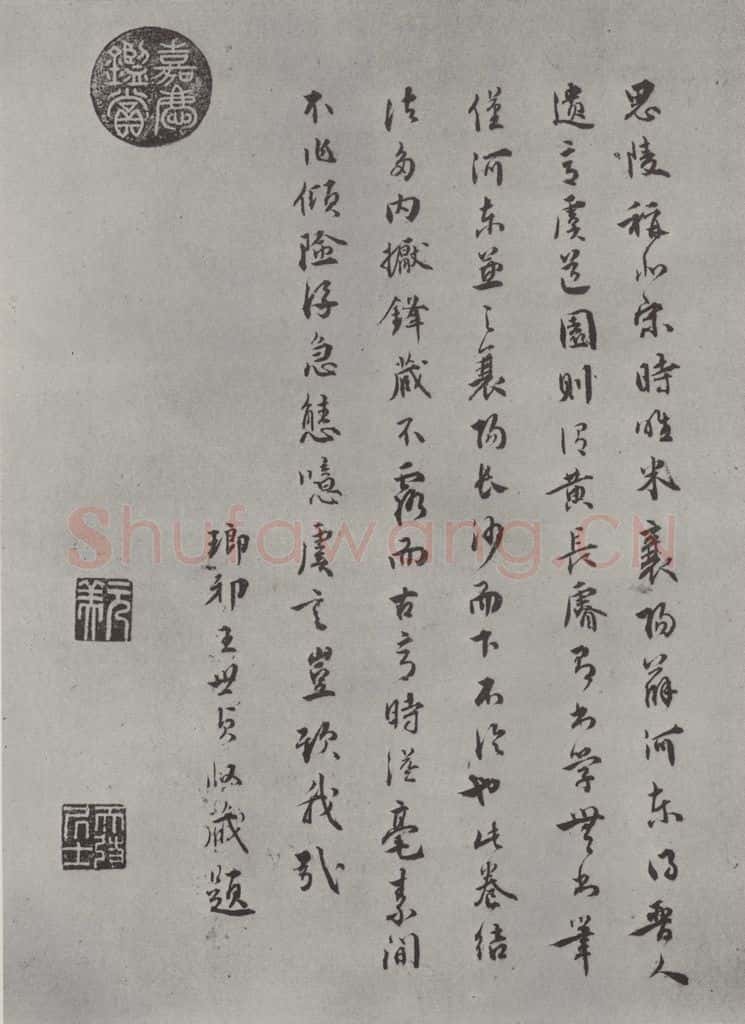 思陵稱北宋時唯米襄陽薛河東得晉人
遺意虞道園則謂黃長睿有書學無書筆
僅河東並之襄陽長沙而下不論也此卷結
法多內擫鋒藏不露而古意時溢毫素間
不作傾險浮急態噫虞言豈欺我哉
瑯邪王世貞收藏題
嘉慶鑑賞
元美
Shufawang.CN